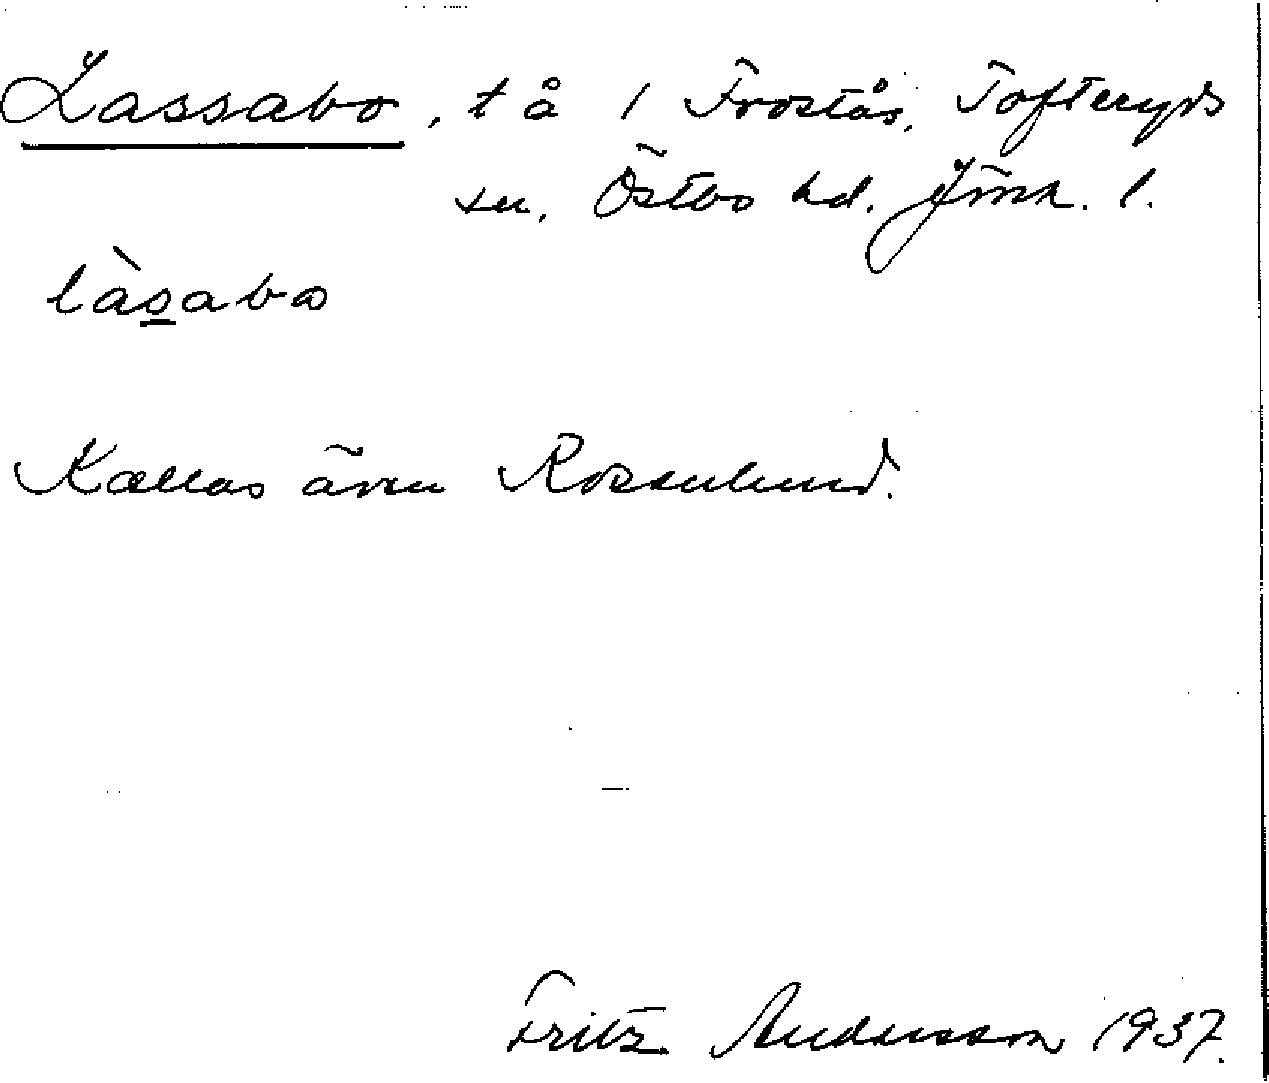 Lassabo, t å 1 Frostås, Tofteryds
sn, Östbo hd. Jönk. l.
làs̲abo
Kallas även Rosenlund.
Fritz Andersson 1937.